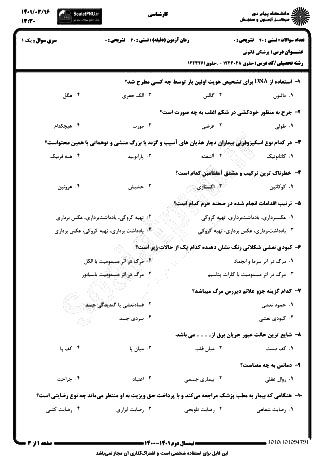 ۱۴۰۱/۰۳/۱۶
۱۴:۳۰
کارشناسی
دانشگاه پیام نور
مرکز آزمون و سنجش
تعداد سوالات : تستی : ۲۰ تشریحی : ۰
زمان آزمون (دقیقه) : تستی : ۶۰ تشریحی : ۰
سری سوال : یک ۱
عنوان درس : پزشکی قانونی
رشته تحصیلی/کد درس :
۱- استفاده از DNA برای تشخیص هویت اولین بار توسط چه کسی مطرح شد؟
۱. مالتوس ۲. گالتن ۳. الک جفری ۴. هنگل
۲- جرح به منظور خودکشی در شکم اغلب به چه صورت است؟
۱. طولی ۲. عرضی ۳. مورب ۴. هیچکدام
۳- در کدام نوع اسکیزوفرنی بیماران دچار هذیان های آسیب و گزند یا بزرگ منشی و توهماتی با همین محتواست؟
۱. کاتاتونیک ۲. آشفته ۳. پارانوئید ۴. هبه فرنیک
۴- خطرناک ترین ترکیب و مشتق آمفتامین کدام است؟
۱. کوکائین ۲. اکستازی ۳. حشیش ۴. هروئین
۵- ترتیب اقدامات انجام شده در صحنه جرم کدام است؟
۱. عکسبرداری، یادداشتبرداری، تهیه کروکی ۲. تهیه کروکی، یادداشتبرداری، عکس برداری
۳. یادداشتبرداری، عکس برداری، تهیه کروکی ۴. یادداشتبرداری، تهیه کروکی، عکس برداری
۶- کبودی نعشی شکلاتی رنگ نشان دهنده کدام یک از حالات زیر است؟
۱. مرگ در اثر سرما و انجماد ۲. مرگ در اثر مسمومیت با الکل
۳. مرگ در اثر مسمومیت با کلرات پتاسیم ۴. مرگ در اثر مسمومیت با سیانور
۷- کدام گزینه جزو علائم دیررس مرگ میباشد؟
۱. جمود نعشی ۲. فساد نعشی یا گندیدگی جسد
۳. کبودی نعشی ۴. سردی جسد
۸- شایع ترین حالت عبور جریان برق از..... می باشد.
۱. کف دست ۲. میان قلب ۳. میان پا ۴. کف پا
۹- دمانس به چه معناست؟
۱. زوال عقلی ۲. بیماری جسمی ۳. اعتیاد ۴. جراحت
۱۰- هنگامی که بیمار به مطب پزشک مراجعه می‌کند و با پرداخت حق ویزیت به او منتظر می‌ماند چه نوع رضایتی است؟
۱. رضایت شفاهی ۲. رضایت تلویحی ۳. رضایت ابرازی ۴. رضایت کتبی
صفحه ۱ از ۳
نیمسال دوم ۱۴۰۱-۱۴۰۰
1010/101094791
این فایل برای استفاده شخصی است و اشتراک‌گذاری آن مجاز نمی‌باشد